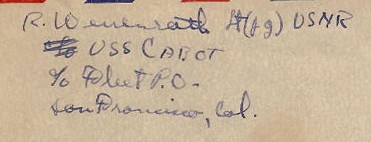 R. Weinrath Lt(jg) USNR
USS CABOT
c/o Fleet P.O.-
San Francisco, Cal.